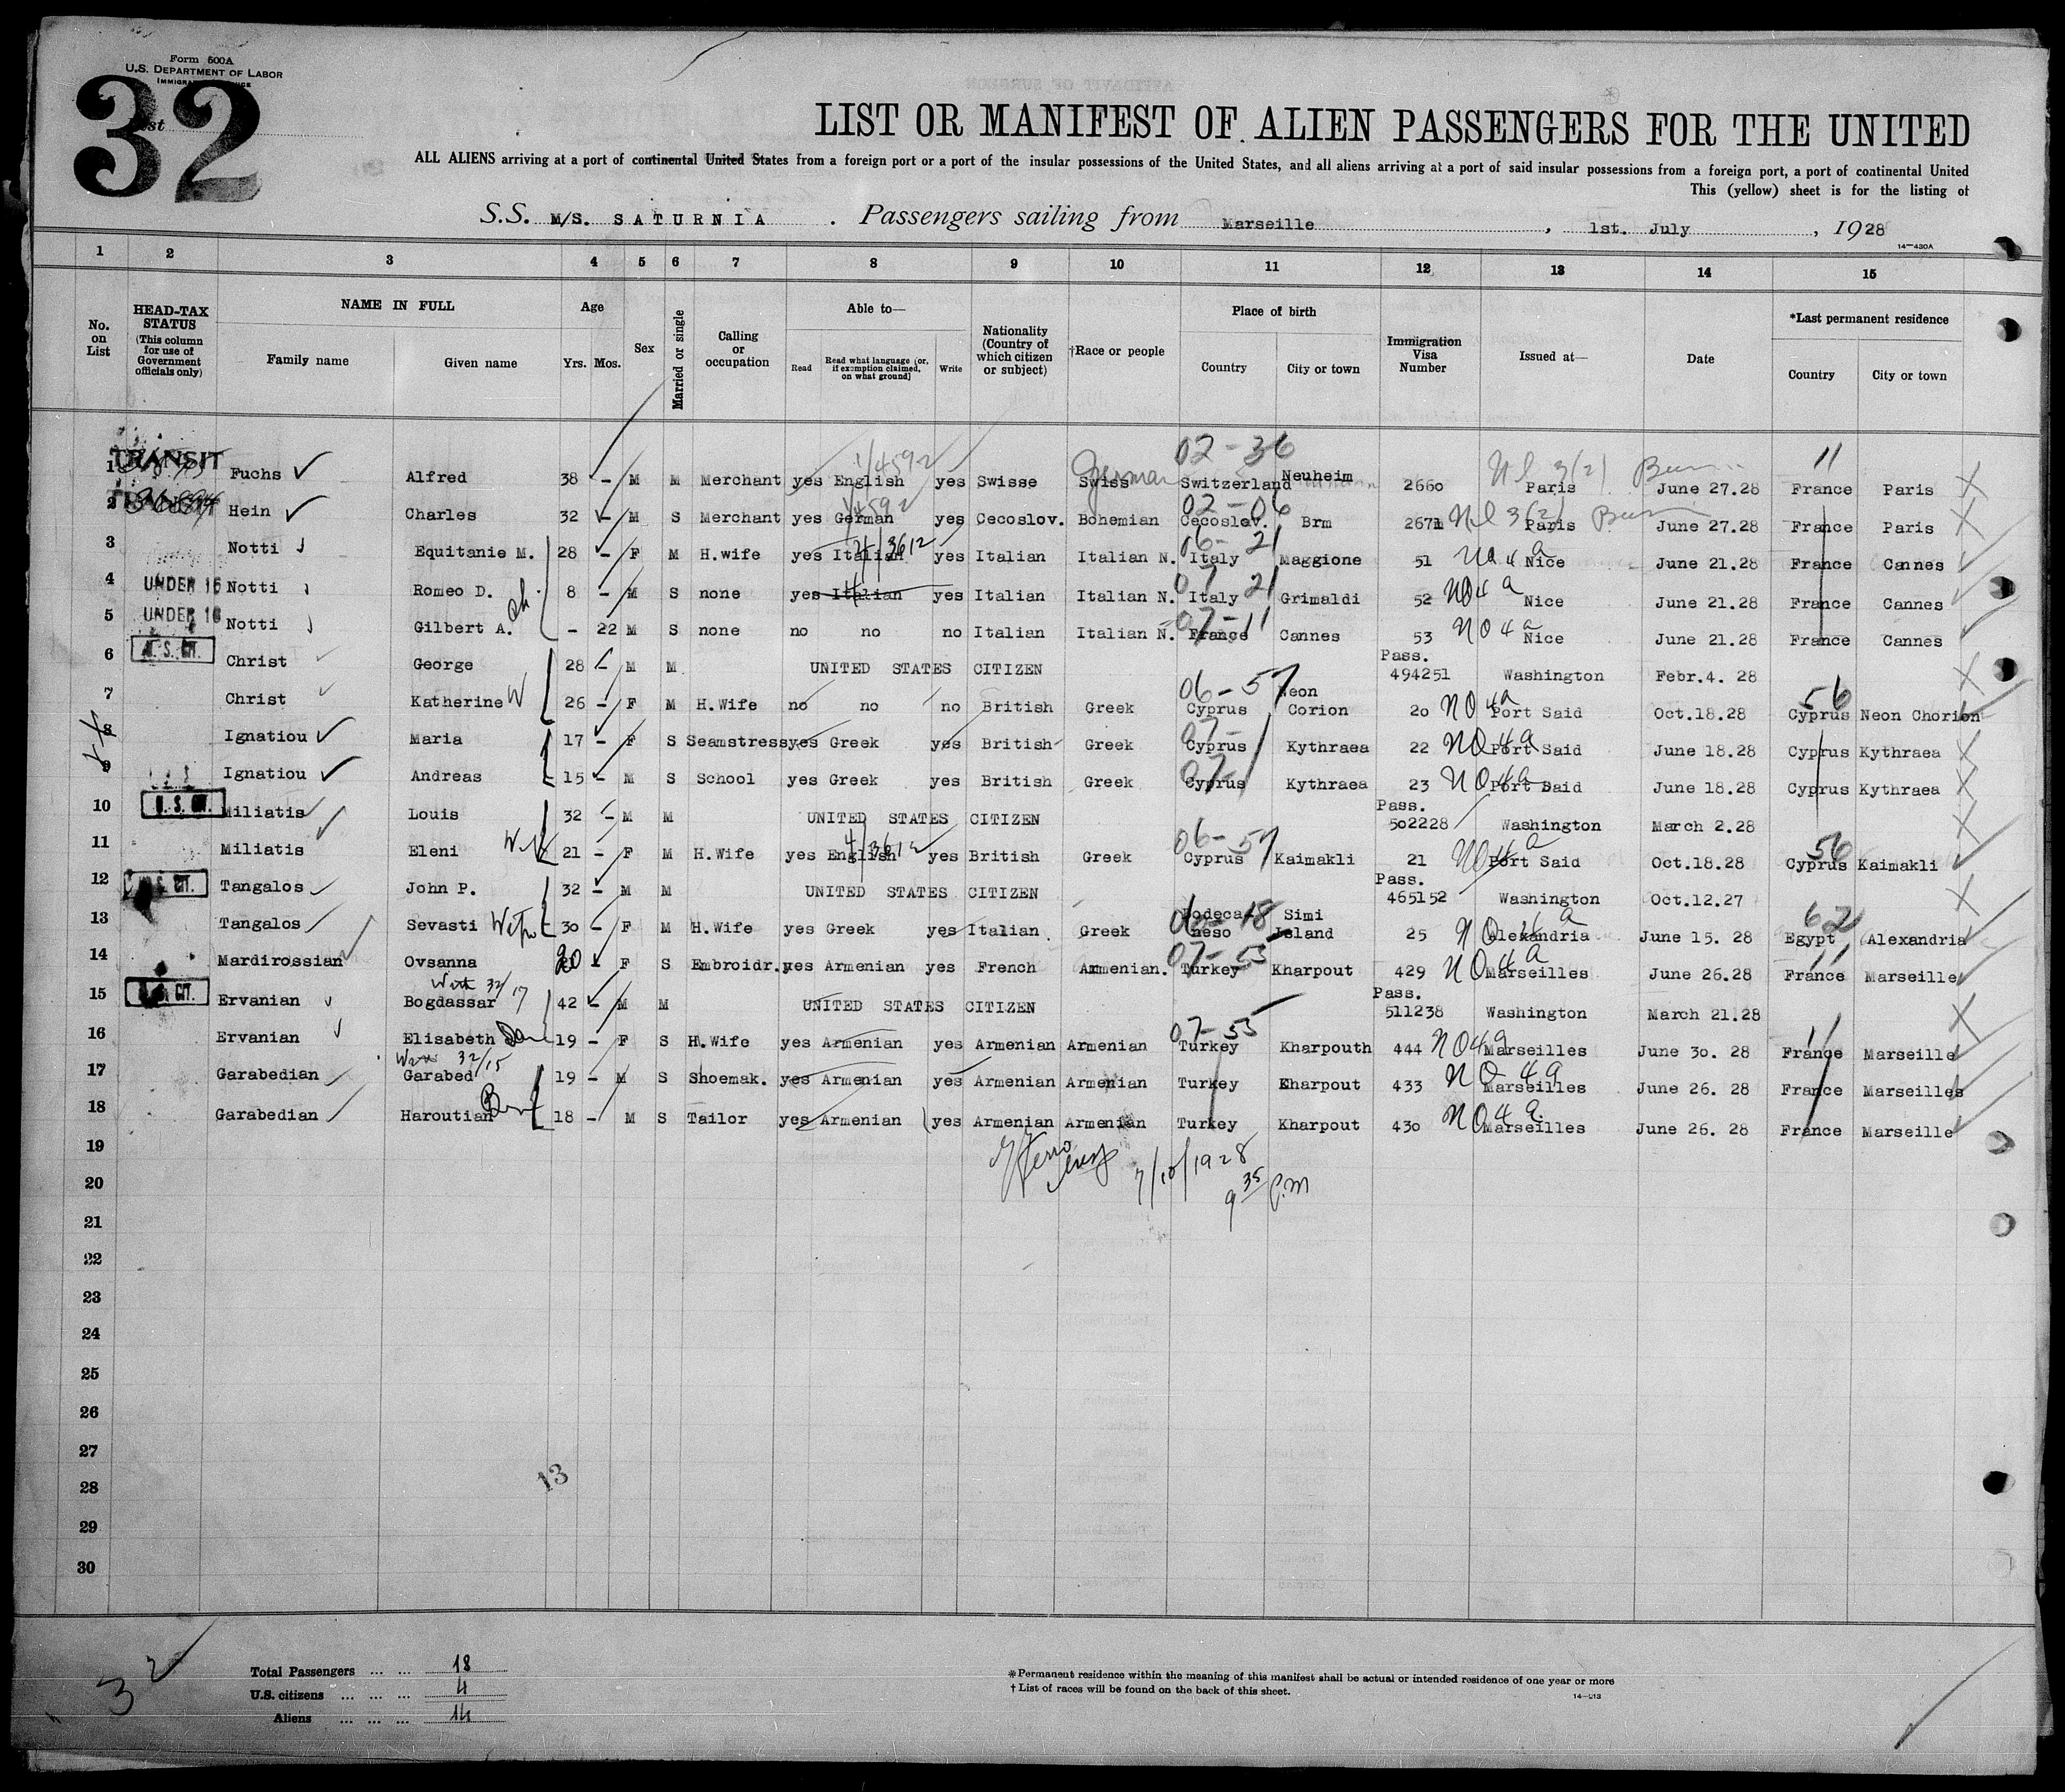 Form 500A
U.S. DEPARTMENT OF LABOR
32
LIST OR MANIFEST OF ALIEN PASSENGERS FOR THE UNITED
ALL ALIENS arriving at a port of continental United States from a foreign port or a port of the insular possessions of the United States, and all aliens arriving at a port of said insular possessions from a foreign port, a port of continental United
This (yellow) sheet is for the listing of
S.S. M/S. SATURNIA . Passengers sailing from Marseille , 1st. July , 1928
14—430A
1 2 3 4 5 6 7 8 9 10 11 12 13 14 15
No. on List
HEAD-TAX STATUS (This column for use of Government officials only)
NAME IN FULL Family name Given name
Age Yrs. Mos.
Sex
Married or single
Calling or occupation
Able to— Read Read what language (or, if exemption claimed, on what ground) Write
Nationality (Country of which citizen or subject)
†Race or people
Place of birth Country City or town
Immigration Visa Number
Issued at—
Date
*Last permanent residence Country City or town
1 TRANSIT Fuchs Alfred 38 - M M Merchant yes English yes Swisse Swiss German Switzerland 02-36 Neuheim 2660 Paris June 27.28 France Paris
2 Hein Charles 32 - M S Merchant yes German yes Cecoslov. Bohemian Cecoslov. 02-06 Brm 2671 Paris June 27.28 France Paris
3 Notti Equitanie M. 28 - F M H.wife yes Italian yes Italian Italian N. Italy 06-21 Maggione 51 Nice June 21.28 France Cannes
4 UNDER 16 Notti Romeo D. 8 - M S none yes Italian yes Italian Italian N. Italy 07 21 Grimaldi 52 NO4a Nice June 21.28 France Cannes
5 UNDER 16 Notti Gilbert A. - 22 M S none no no no Italian Italian N. France 07-11 Cannes 53 NO4a Nice June 21.28 France Cannes
6 U.S. CIT. Christ George 28 - M M UNITED STATES CITIZEN Pass. 494251 Washington Febr.4. 28
7 Christ Katherine W 26 - F M H.Wife no no no British Greek Cyprus 06-57 Neon Corion 20 NO4a Port Said Oct.18.28 56 Cyprus Neon Chorion
8 Ignatiou Maria 17 - F S Seamstress yes Greek yes British Greek Cyprus 07- Kythraea 22 NO4a Port Said June 18.28 Cyprus Kythraea
9 Ignatiou Andreas 15 - M S School yes Greek yes British Greek Cyprus 07- Kythraea 23 NO4a Port Said June 18.28 Cyprus Kythraea
10 U.S. CIT. Miliatis Louis 32 - M M UNITED STATES CITIZEN Pass. 502228 Washington March 2.28
11 Miliatis Eleni 21 - F M H.Wife yes English yes British Greek Cyprus 06-57 Kaimakli 21 NO4a Port Said Oct.18.28 56 Cyprus Kaimakli
12 U.S. CIT. Tangalos John P. 32 - M M UNITED STATES CITIZEN Pass. 465152 Washington Oct.12.27
13 Tangalos Sevasti 30 - F M H.Wife yes Greek yes Italian Greek Dodeca-neso Simi Island 25 Alexandria June 15. 28 62 Egypt Alexandria
14 Mardirossian Ovsanna 20 - F S Embroidr. yes Armenian yes French Armenian. Turkey 07-53 Kharpout 429 NO4a Marseilles June 26.28 11 France Marseille
15 CIT. Ervanian Bogdassar With 32/17 42 - M M UNITED STATES CITIZEN Pass. 511238 Washington March 21.28
16 Ervanian Elisabeth 19 - F S H.Wife yes Armenian yes Armenian Armenian Turkey 07-55 Kharpouth 444 NO4a Marseilles June 30. 28 11 France Marseille
17 Garabedian Garabed 32/15 19 - M S Shoemak. yes Armenian yes Armenian Armenian Turkey Kharpout 433 NO4a Marseilles June 26. 28 France Marseilles
18 Garabedian Haroutian 18 - M S Tailor yes Armenian yes Armenian Armenian Turkey Kharpout 430 NO4a. Marseilles June 26. 28 France Marseille
19
7/10/1928
20
9 35 P.M
21
22
23
24
25
26
27
28
13
29
30
32
Total Passengers ... ... 18
U.S. citizens ... ... ... 4
Aliens ... ... ... 14
*Permanent residence within the meaning of this manifest shall be actual or intended residence of one year or more
† List of races will be found on the back of this sheet.
14—213